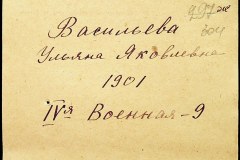 Васильева
Ульяна Яковлевна
1901
IVя Военная - 9